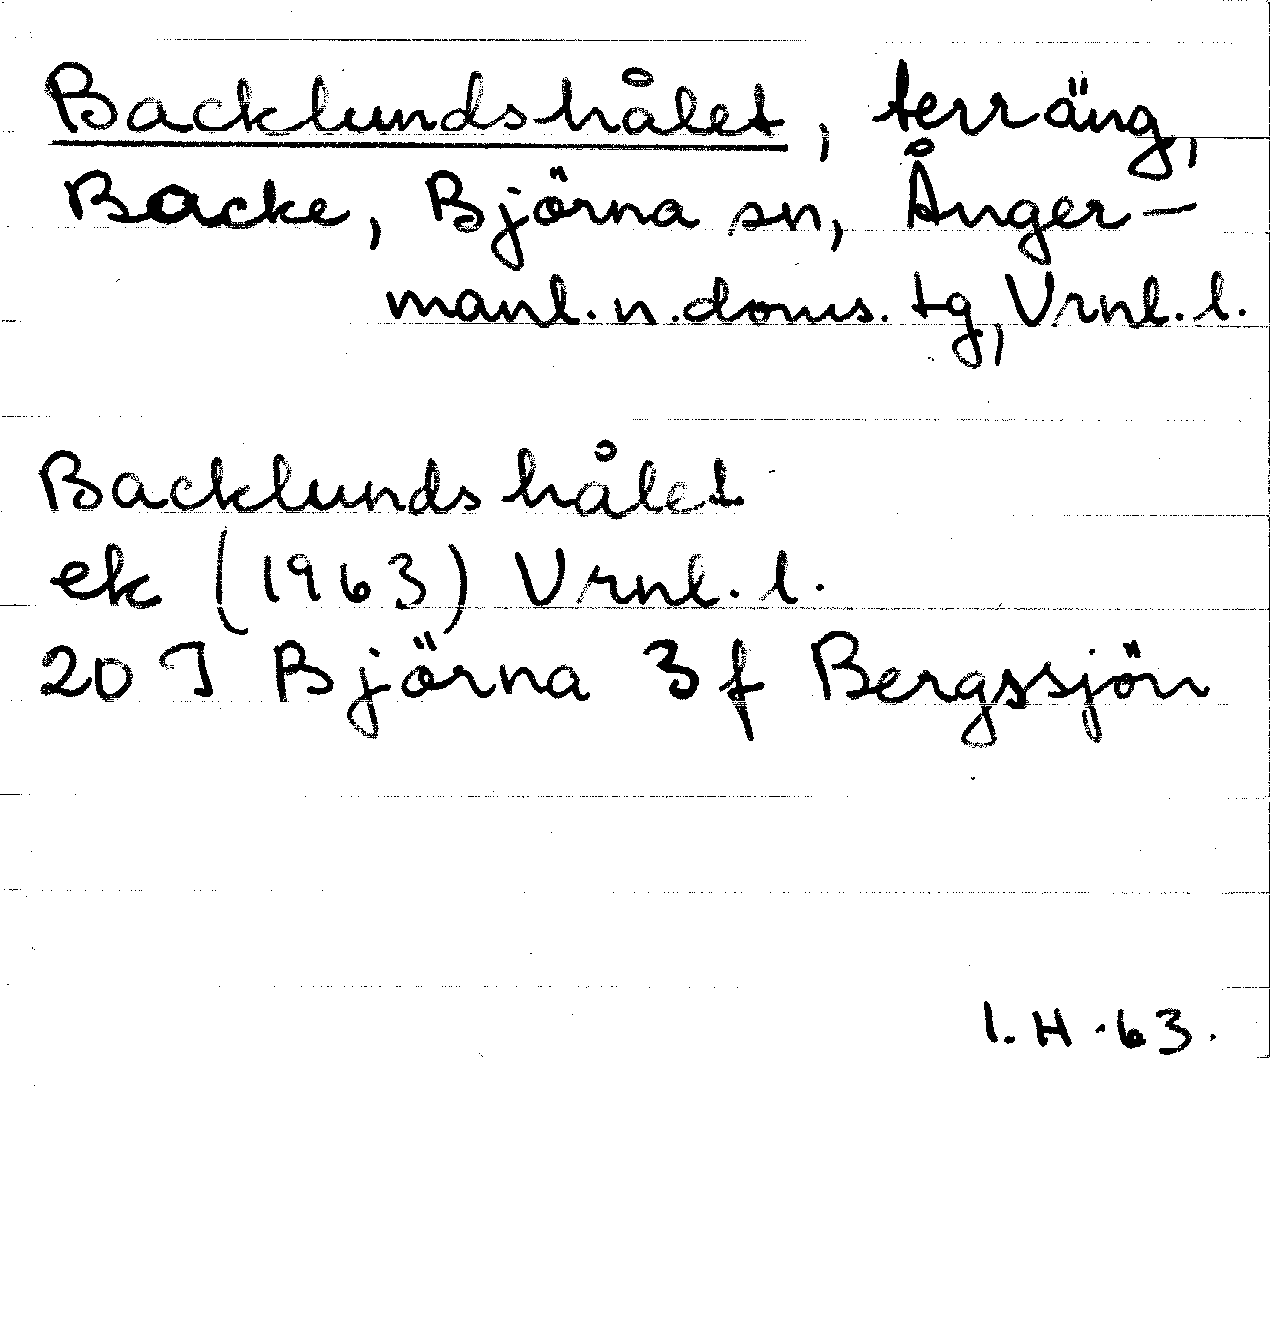 Backlundshålet, terräng,
Backe, Björna sn, Ånger-
manl. n. doms. tg, Vrnl. l.
Backlundshålet
ek (1963) Vrnl. l.
20 J Björna 3 f Bergssjön
I. H. 63.